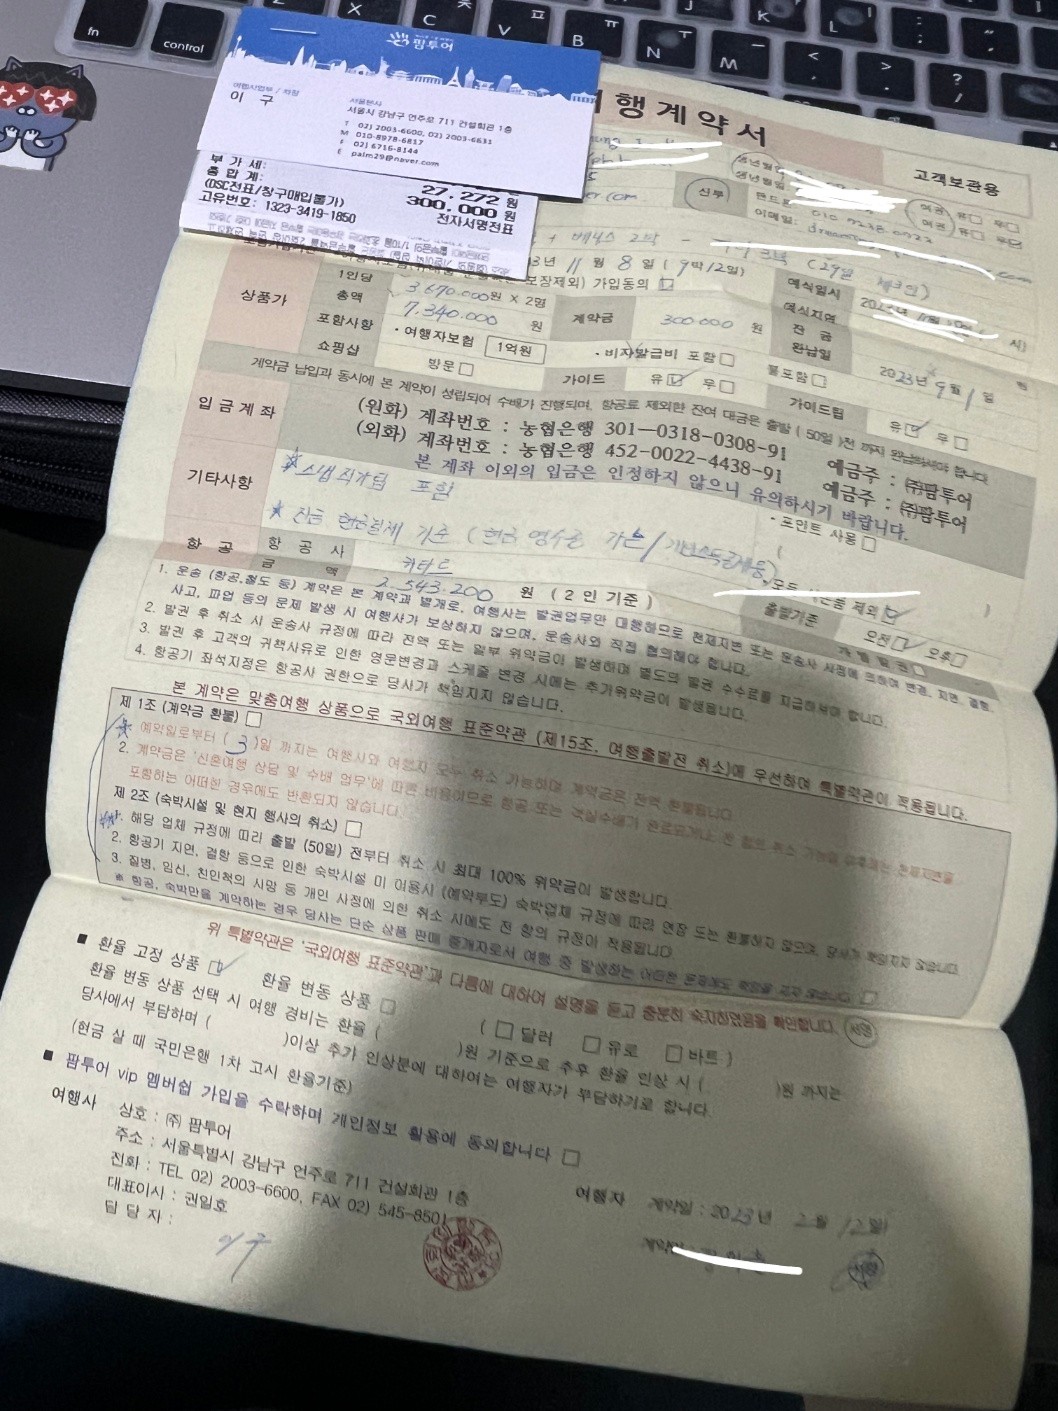 fn
control
X
C
ㅊ
V
ㅍ
B
ㅠ
N
ㅜ
M
J
K
L
팜투어
여행사업부 / 차장
이 구
서울본사
서울시 강남구 언주로 711 건설회관 1층
T 02) 2003-6600, 02) 2003-6631
M 010-8978-6817
F 02) 6716-8144
E palm29@naver.com
부 가 세: 27,272 원
총 합 계: 300,000 원
(DSC전표/창구매입불가) 전자서명전표
고유번호: 1323-3419-1850
행계약서
고객보관용
신부
이메일:
11 월 8 일 (9박12일)
가입동의
예식일시
예식지역
상품가
1인당 3,670.000원 X 2명
총액 7,340.000 원
계약금 300.000 원
잔금 완납일 2023년 9월 1일
포함사항 · 여행자보험 1억원 · 비자발급비 포함 불포함
쇼핑샵 방문 가이드 유 무 가이드팁 유 무
계약금 납입과 동시에 본 계약이 성립되어 수배가 진행되며, 항공료 제외한 잔여 대금은 출발 (50일)전 까지 완납하셔야 합니다.
입금계좌
(원화) 계좌번호 : 농협은행 301-0318-0308-91 예금주 : ㈜팜투어
(외화) 계좌번호 : 농협은행 452-0022-4438-91 예금주 : ㈜팜투어
본 계좌 이외의 입금은 인정하지 않으니 유의하시기 바랍니다.
기타사항
포함
· 포인트 사용
잔금 현금결제 기준 (현금 영수증 가능/
항 공
항 공 사 카타르
금 액 2.543.200 원 (2인기준)
출발기준 오전 오후
1. 운송 (항공,철도 등) 계약은 본 계약과 별개로, 여행사는 발권업무만 대행하므로 천재지변 또는 운송사 사정에 의하여 변경, 지연, 결항,
사고, 파업 등의 문제 발생 시 여행사가 보상하지 않으며, 운송사와 직접 협의해야 합니다.
2. 발권 후 취소 시 운송사 규정에 따라 전액 또는 일부 위약금이 발생하며 별도의 발권 수수료를 지급하셔야 합니다.
3. 발권 후 고객의 귀책사유로 인한 영문변경과 스케줄 변경 시에는 추가위약금이 발생됩니다.
4. 항공기 좌석지정은 항공사 권한으로 당사가 책임지지 않습니다.
본 계약은 맞춤여행 상품으로 국외여행 표준약관 (제15조, 여행출발전 취소)에 우선하여 특별약관이 적용됩니다.
제 1조 (계약금 환불)
예약일로부터 ( 3 )일 까지는 여행사와 여행자 모두 취소 가능하며 계약금은 전액 환불됩니다.
2. 계약금은 '신혼여행 상담 및 수배 업무'에 따른 비용이므로 항공 또는 객실수배가 완료되거나
포함하는 어떠한 경우에도 반환되지 않습니다.
제 2조 (숙박시설 및 현지 행사의 취소)
해당 업체 규정에 따라 출발 (50일) 전부터 취소 시 최대 100% 위약금이 발생합니다.
2. 항공기 지연, 결항 등으로 인한 숙박시설 미 이용시 (예약부도) 숙박업체 규정에 따라 연장 또는 환불하지 않으며, 당사가 책임지지 않습니다.
3. 질병, 임신, 친인척의 사망 등 개인 사정에 의한 취소 시에도 전 항의 규정이 적용됩니다
* 항공, 숙박만을 계약하는 경우 당사는 단순 상품 판매 중개자로서 여행 중 발생하는 어떠한 문제에도 책임을 지지 않습니다.
위 특별약관은 '국외여행 표준약관'과 다름에 대하여 설명을 듣고 충분히 숙지하였음을 확인합니다. 서명
■ 환율 고정 상품 환율 변동 상품 ( 달러 유로 바트 )
환율 변동 상품 선택 시 여행 경비는 환율 ( )원 기준으로 추후 환율 인상 시 ( )원 까지는
당사에서 부담하며 ( )이상 추가 인상분에 대하여는 여행자가 부담하기로 합니다.
(현금 살 때 국민은행 1차 고시 환율기준)
■ 팜투어 vip 멤버쉽 가입을 수락하며 개인정보 활용에 동의합니다
여행사 상호 : ㈜ 팜투어
주소 : 서울특별시 강남구 언주로 711 건설회관 1층
전화 : TEL 02) 2003-6600, FAX 02) 545-8501
대표이사 : 권일호
담 당 자 : 이구
여행자 계약일 : 2023년 2월 12일